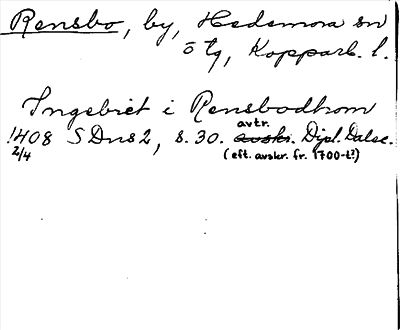 Rensbo, by, Hedemora sn
ö tg, Kopparb. l.
Ingebiet i Rensbodhom
1408 SDns2, s. 30. avtr. Dipl. Dalec.
2/4 (eft. avskr. fr. 1700-t?)